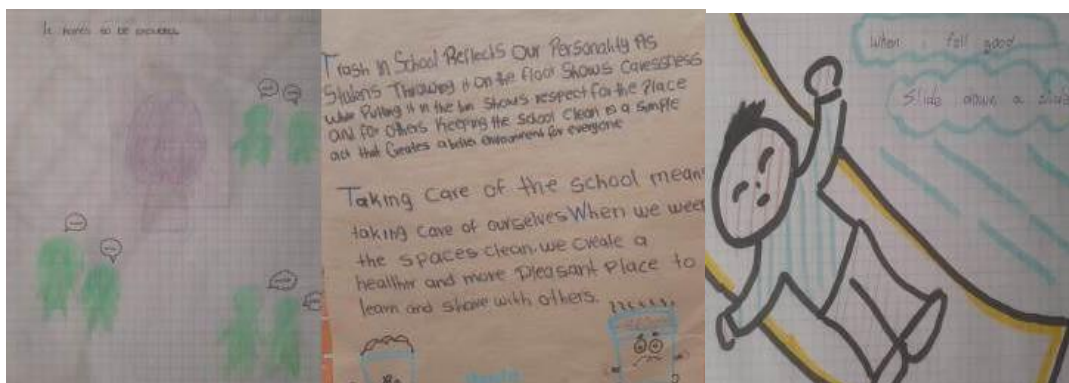 It hurts to be excluded
Trash in School Reflects Our Personality As
Students Throwing it On the floor Shows Caressness
While Putting it in the bin Shows respect For the Place
and for others Keeping the School Clean is a Simple
act that Creates a better environment for everyone
Taking care of the school means
taking care of ourselves When we
the spaces clean, we create a
and more Pleasant Place to
learn and share with others.
When I fell good
Slide down a slide